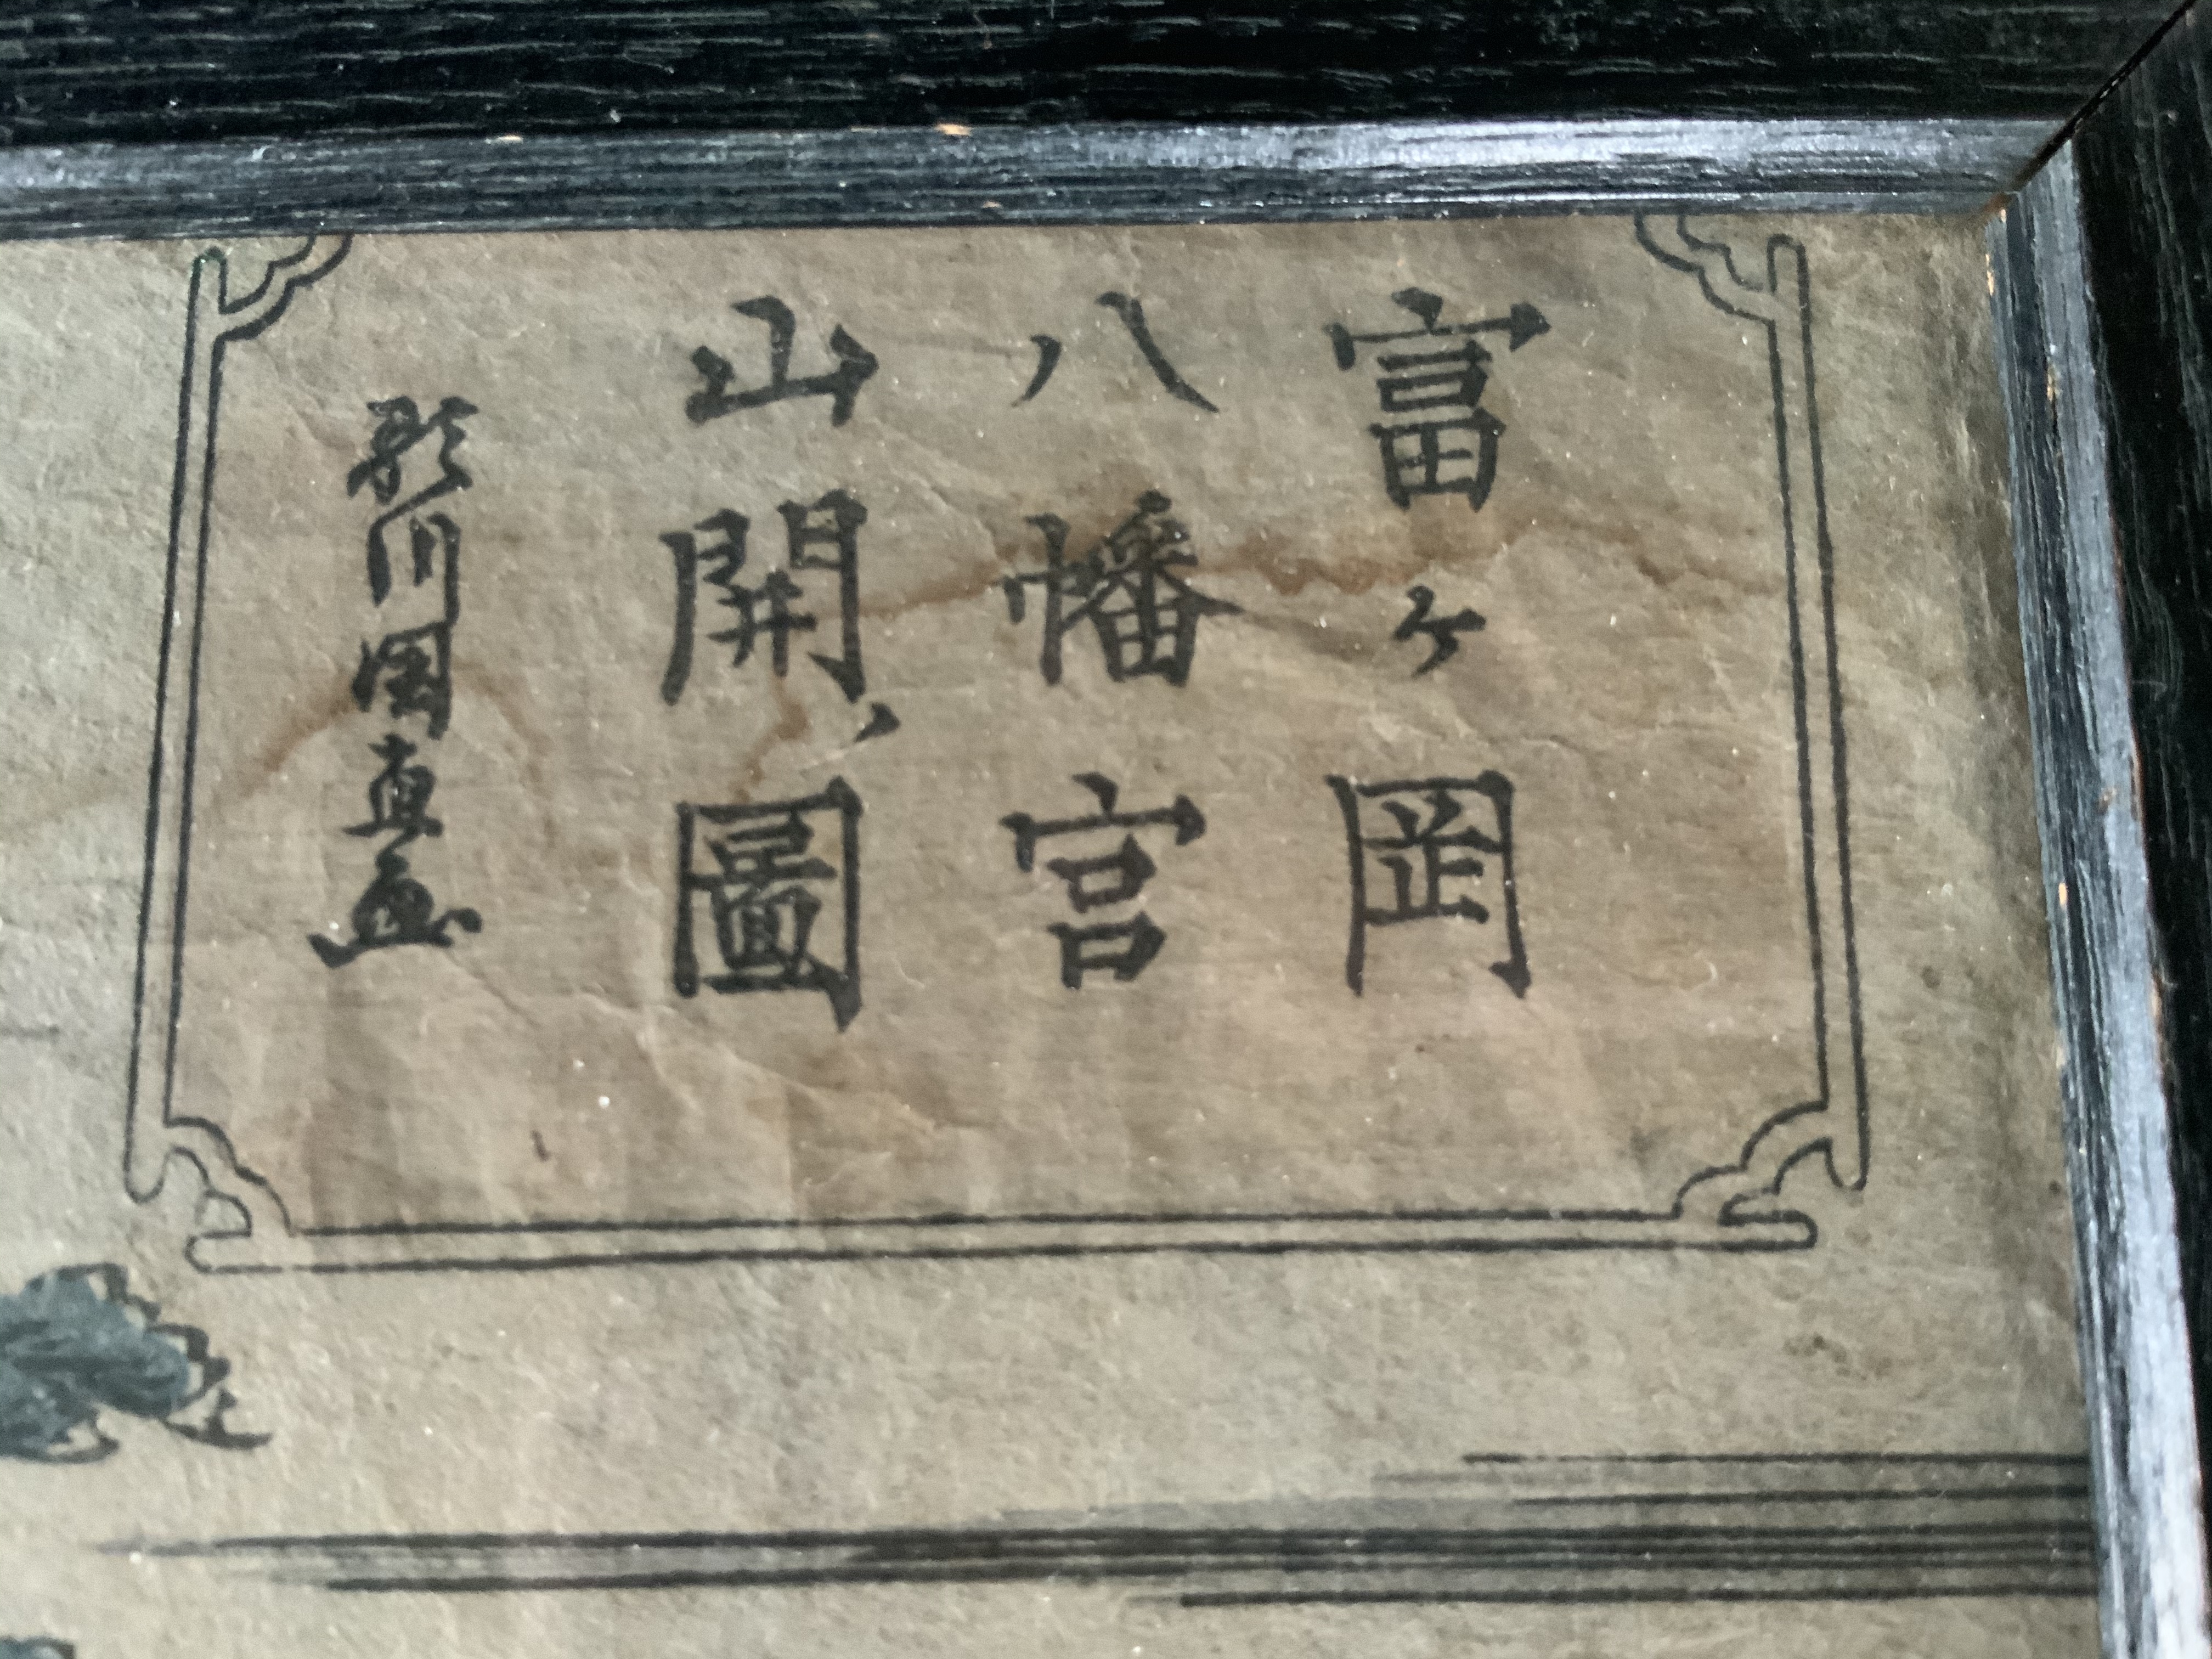 富ヶ岡
八幡宮
山開圖
歌川國直画